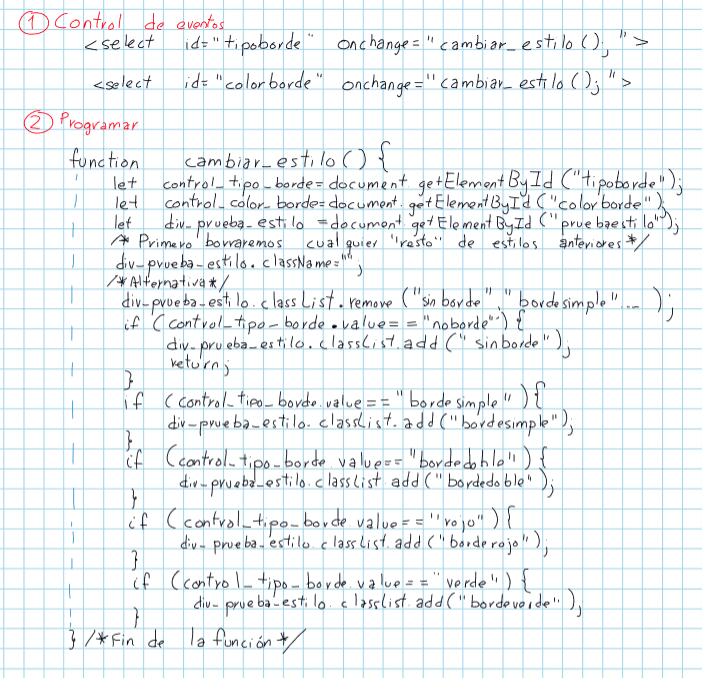 ① Control de eventos
<select id="tipoborde" onchange="cambiar_estilo();">
<select id="colorborde" onchange="cambiar_estilo();">
② Programar
function cambiar_estilo() {
let control_tipo_borde=document.getElementById("tipoborde");
let control_color_borde=document.getElementById("colorborde");
let div_prueba_estilo=document.getElementById("pruebaestilo");
/* Primero borraremos cualquier "resto" de estilos anteriores */
div_prueba_estilo.className="";
/*Alternativa*/
div_prueba_estilo.classList.remove("sinborde","bordesimple"... );
if (control_tipo_borde.value=="noborde") {
div_prueba_estilo.classList.add("sinborde");
return;
}
if (control_tipo_borde.value=="bordesimple") {
div_prueba_estilo.classList.add("bordesimple");
}
if (control_tipo_borde.value=="bordedoble") {
div_prueba_estilo.classList.add("bordedoble");
}
if (control_tipo_borde.value=="rojo") {
div_prueba_estilo.classList.add("borderojo");
}
if (control_tipo_borde.value=="verde") {
div_prueba_estilo.classlist.add("bordeverde");
}
} /*Fin de la función*/